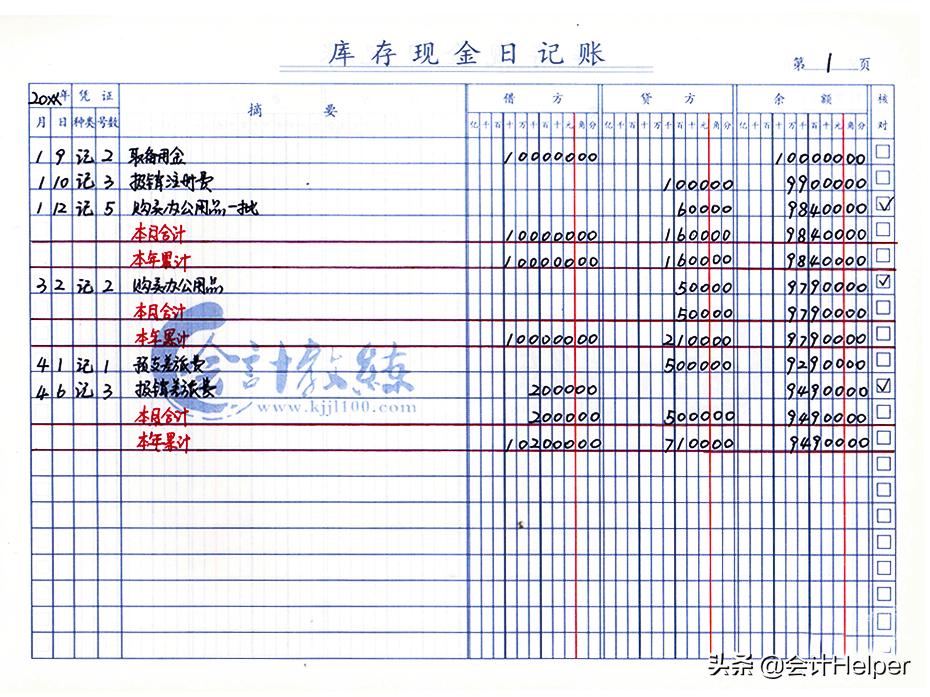 库存现金日记账
第 1 页
20XX年 凭证 摘要 借方 贷方 余额 核对
月 日 种类 号数 亿千百十万千百十元角分 亿千百十万千百十元角分 亿千百十万千百十元角分
1 9 记 2 取备用金 10000000 10000000
1 10 记 3 报销注册费 100000 9900000
1 12 记 5 购买办公用品一批 60000 9840000
本月合计 10000000 160000 9840000
本年累计 10000000 160000 9840000
3 2 记 2 购买办公用品 50000 9790000
本月合计 50000 9790000
本年累计 10000000 210000 9790000
4 1 记 1 预支差旅费 500000 9290000
4 6 记 3 报销差旅费 200000 9490000
本月合计 200000 500000 9490000
本年累计 10200000 710000 9490000
会计教练
www.kjjl100.com
头条 @会计Helper